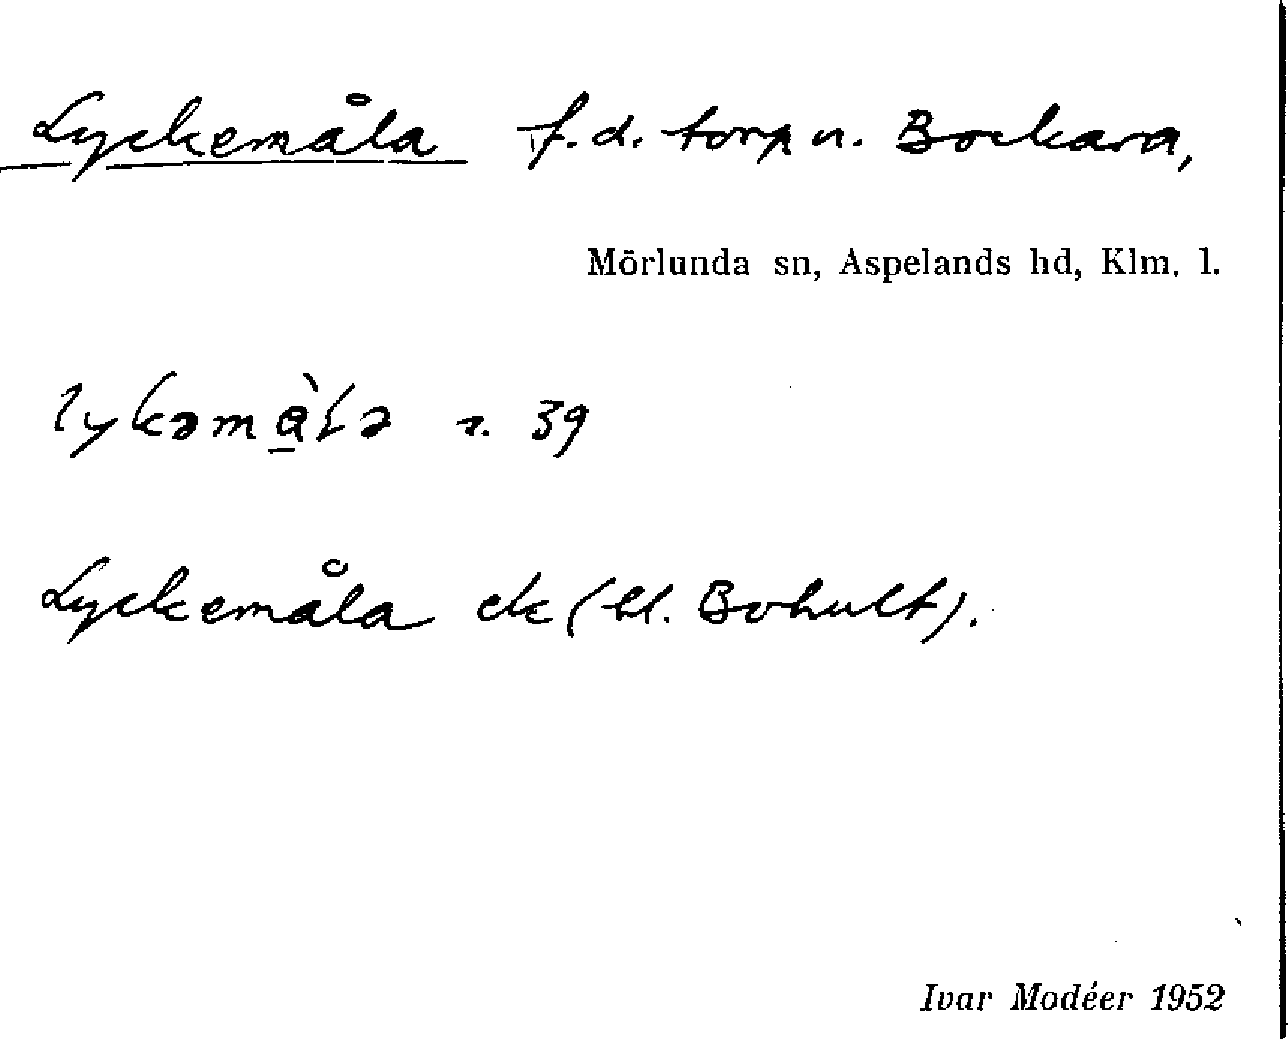 Lyckemåla f.d. torp u. Bockara,
Mörlunda sn, Aspelands hd, Klm. l.
39
Lyckemåla ek (kl. Bohult).
Ivar Modéer 1952